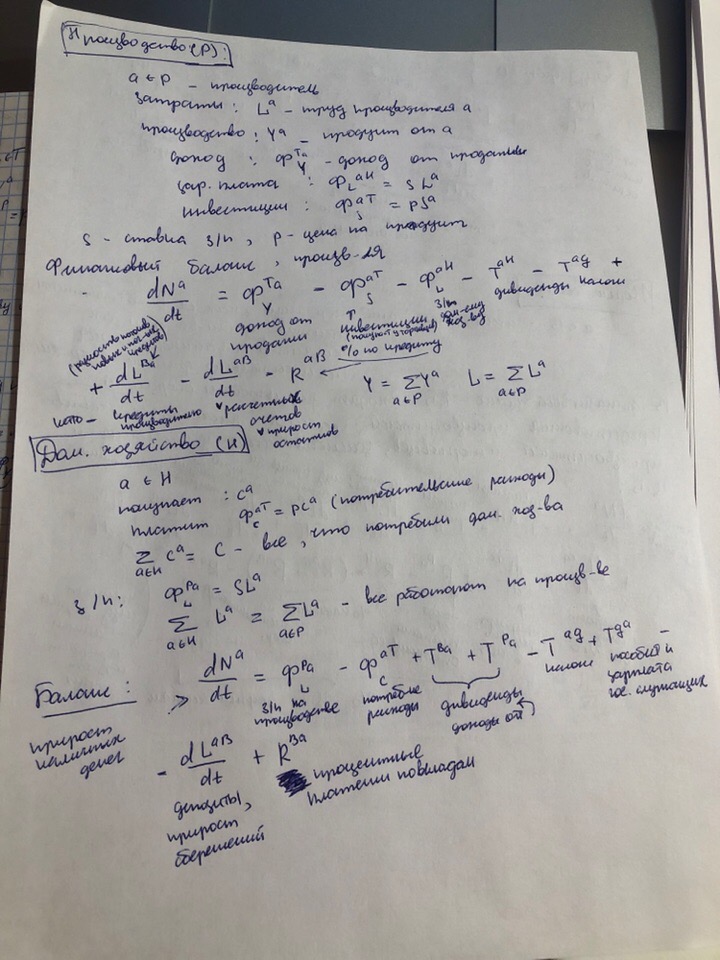 Производство (P):
a ∈ P – производитель
затраты: Lᵃ – труд производителя a
производство: Yᵃ – продукт от a
доход: Φ_Y^{Ta} – доход от продажи
зар. плата: Φ_L^{aH} = sLᵃ
инвестиции: Φ_S^{aT} = pSᵃ
s – ставка з/п, p – цена на продукт
Финансовый баланс, произв-ля
dNᵃ/dt = Φ_Y^{Ta} – Φ_S^{aT} – Φ_L^{aH} – T^{aH} – T^{ag} +
доход от продажи
инвестиции
з/п
дивиденды налоги
% по кредиту
+ dL^{Ba}/dt – dL^{aB}/dt – R^{aB}
Y = Σ_{a∈P} Yᵃ L = Σ_{a∈P} Lᵃ
кредиты производителю
расчетных счетов
прирост остатков
Дом. хозяйство (H)
a ∈ H
покупает: cᵃ
платит Φ_C^{aT} = pcᵃ (потребительские расходы)
Σ_{a∈H} cᵃ = C – все, что потребили дом. хоз-ва
з/п: Φ_L^{Pa} = sLᵃ
Σ_{a∈H} Lᵃ = Σ_{a∈P} Lᵃ – все работают на произв-ве
Баланс: dNᵃ/dt = Φ_L^{Pa} – Φ_C^{aT} + T^{Ba} + T^{Pa} – T^{ag} + T^{ga} –
прирост наличных денег
з/п на производстве
потребит. расходы
дивиденды
доходы от
налоги
пособия и зарплата гос. служащих
– dL^{aB}/dt + R^{Ba}
депозиты, прирост сбережений
процентные платежи по вкладам